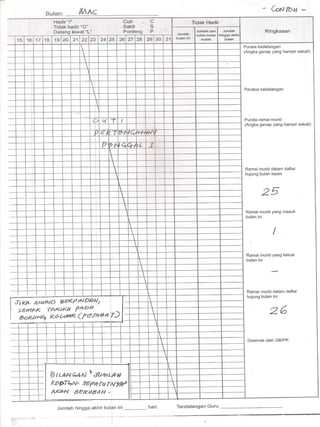 - CONTOH -
Bulan: MAC
Hadir "/" Cuti C Tidak Hadir
Tidak hadir "O" Sakit S
Datang lewat "L" Ponteng P
Jumlah bulan ini
Jumlah dari bulan-bulan sudah
Jumlah hingga akhir bulan
Ringkasan
15 16 17 18 19 20 21 22 23 24 25 26 27 28 29 30 31
Purata kedatangan
(Angka genap yang hampir sekali)
Peratus kedatangan
CUTI
PERTENGAHAN
PENGGAL 1.
Purata ramai murid
(Angka genap yang hampir sekali)
Ramai murid dalam daftar
hujung bulan lepas
25
Ramai murid yang masuk
bulan ini
1
Ramai murid yang keluar
bulan ini
-
Ramai murid dalam daftar
hujung bulan ini
26
JIKA MURID BERPINDAH,
SEMAK TARIKH PADA
BORONG KOLUMK (PEJABAT)
Disemak oleh GB/PK
BILANGAN & JUMLAH
KEDTGN. SEPATUTNYA
AKAN BERUBAH.
Jumlah hingga akhir bulan ini hari. Tandatangan Guru